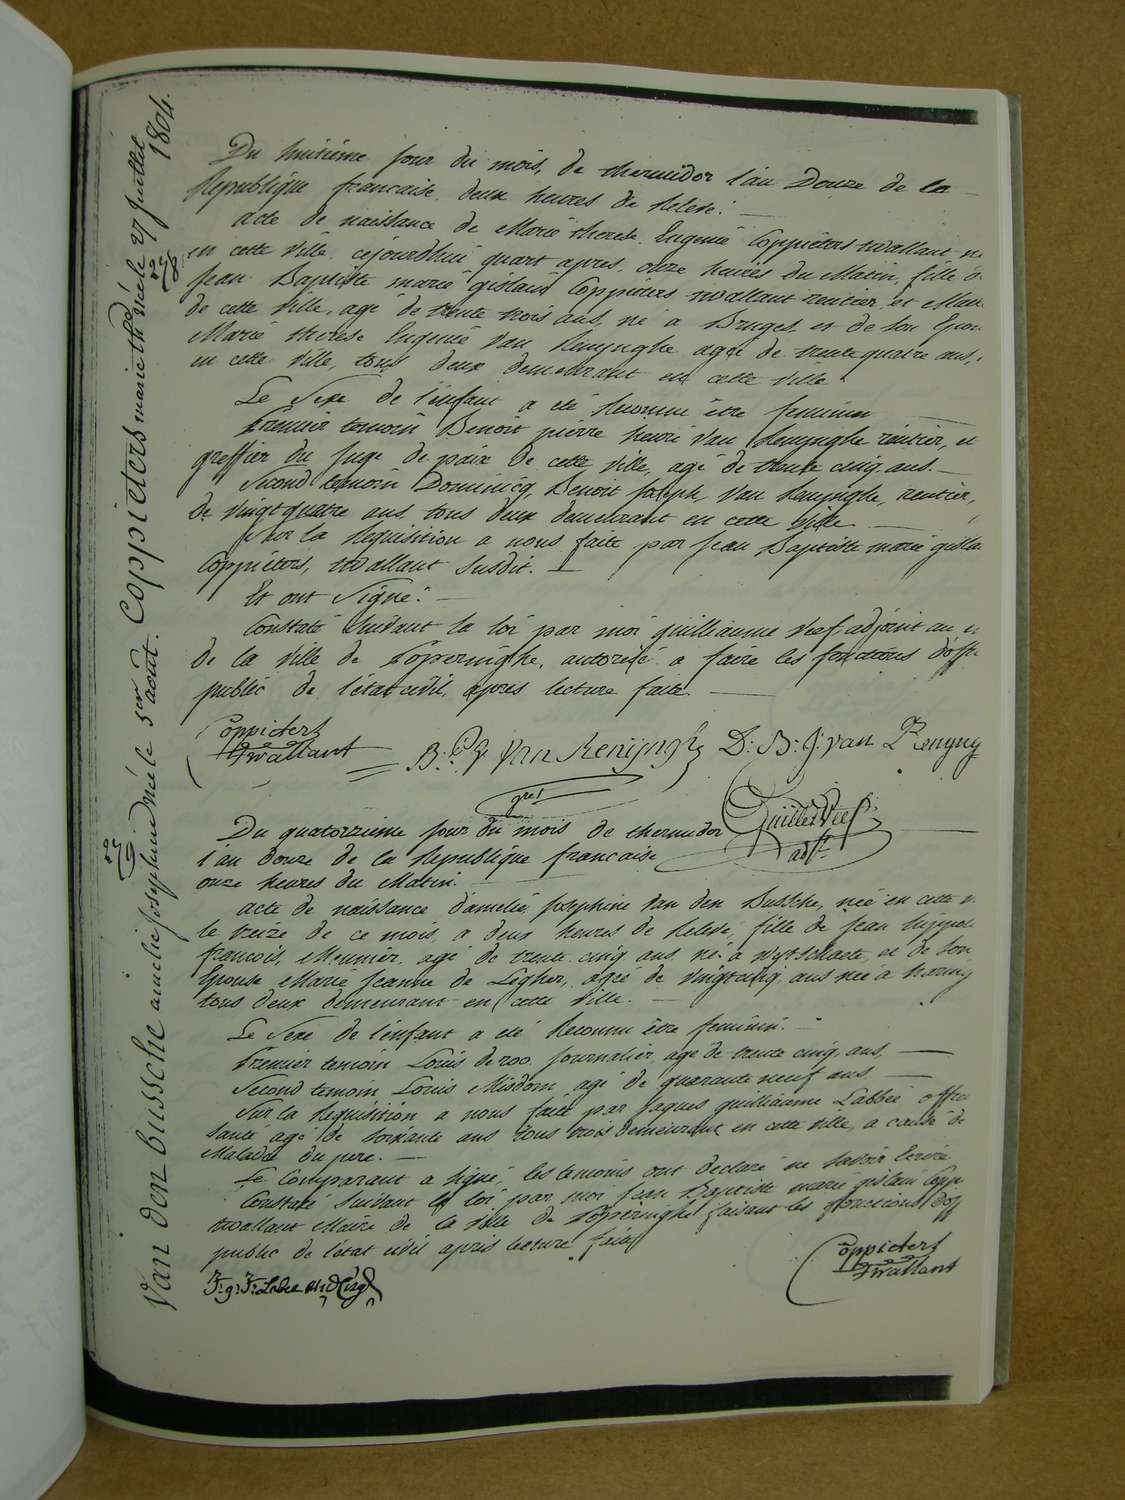 1804.
Coppieters marie th née le 27 Juillet
278
Du huitième jour du mois, de thermidor l'an Douze de la
Republique francaise, deux heures de Relevé.
acte de naissance de Marie therese Eugenie Coppieters twallant, n
en cette ville, cejourdhui quart apres, onze heures du Matin, fille d
Jean Baptiste marie gislain Coppieters twallant rentier, et Mai
de cette ville, agé de trente trois ans, né a Bruges et de son Epou
Marie therese Eugenie Van Renynghe agée de trente quatre ans,
en cette ville, tous deux demeurant en cette ville
Le Sexe de l'enfant a eté Reconnu être feminin
Premier temoin Benoit pierre henri Van Renynghe rentier, et
greffier du Juge de paix de cette ville, agé de trente cinq ans.
Second temoin Dominicq Benoit Joseph Van Renynghe, rentier,
de vingt quatre ans, tous deux demeurant en cette ville
Sur la Requisition a nous faite par Jean Baptiste marie gisla
Coppieters, twallant Susdit.
Et ont Signé.
Constaté Suivant la loi par moi guilliaume Veef adjoint au
de la ville de Poperinghe, autorisé a faire les fonctions d'offi
public de l'état civil, apres lecture faite.
Coppieters
Twallant
B. P. H. Van Renijnghe
D: B: J: van Renyng
grer
Guille: Veef
adjt
Van den bussche amelie josephine née le 1er août.
279
Du quatorzieme jour du mois de thermidor
l'an douze de la Republique francaise
onze heures du Matin.
acte de naissance d'amelie Josephine Van den Bussche, née en cette v
le treize de ce mois, a deux heures de Relevé, fille de Jean
francois, Meunier, agé de trente cinq ans, né a Wytschaete, et de Son
Epouse Marie Jeanne de Legher, agée de vingtcinq ans née a
tous deux demeurant en cette ville.
Le Sexe de l'enfant a eté Reconnu être feminin.
Premier temoin Louis deroo Journalier, agé de trente cinq ans,
Second temoin Louis Misdom agé de quarante neuf ans
Sur la Requisition a nous faite par Jaques guilliaume Labbée offi
Santé agé de Soixante ans tous trois demeurant en cette ville, a cause de
Maladie du pere.
Le Comparant a Signé, les temoins ont declaré ne Savoir Ecrire
Constaté Suivant la loi par moi Jean Baptiste marie gislain Copp
twallant Maire de la ville de Poperinghe faisant les fonctions d'off
public de l'état civil apres lecture faite
Coppieters
Twallant